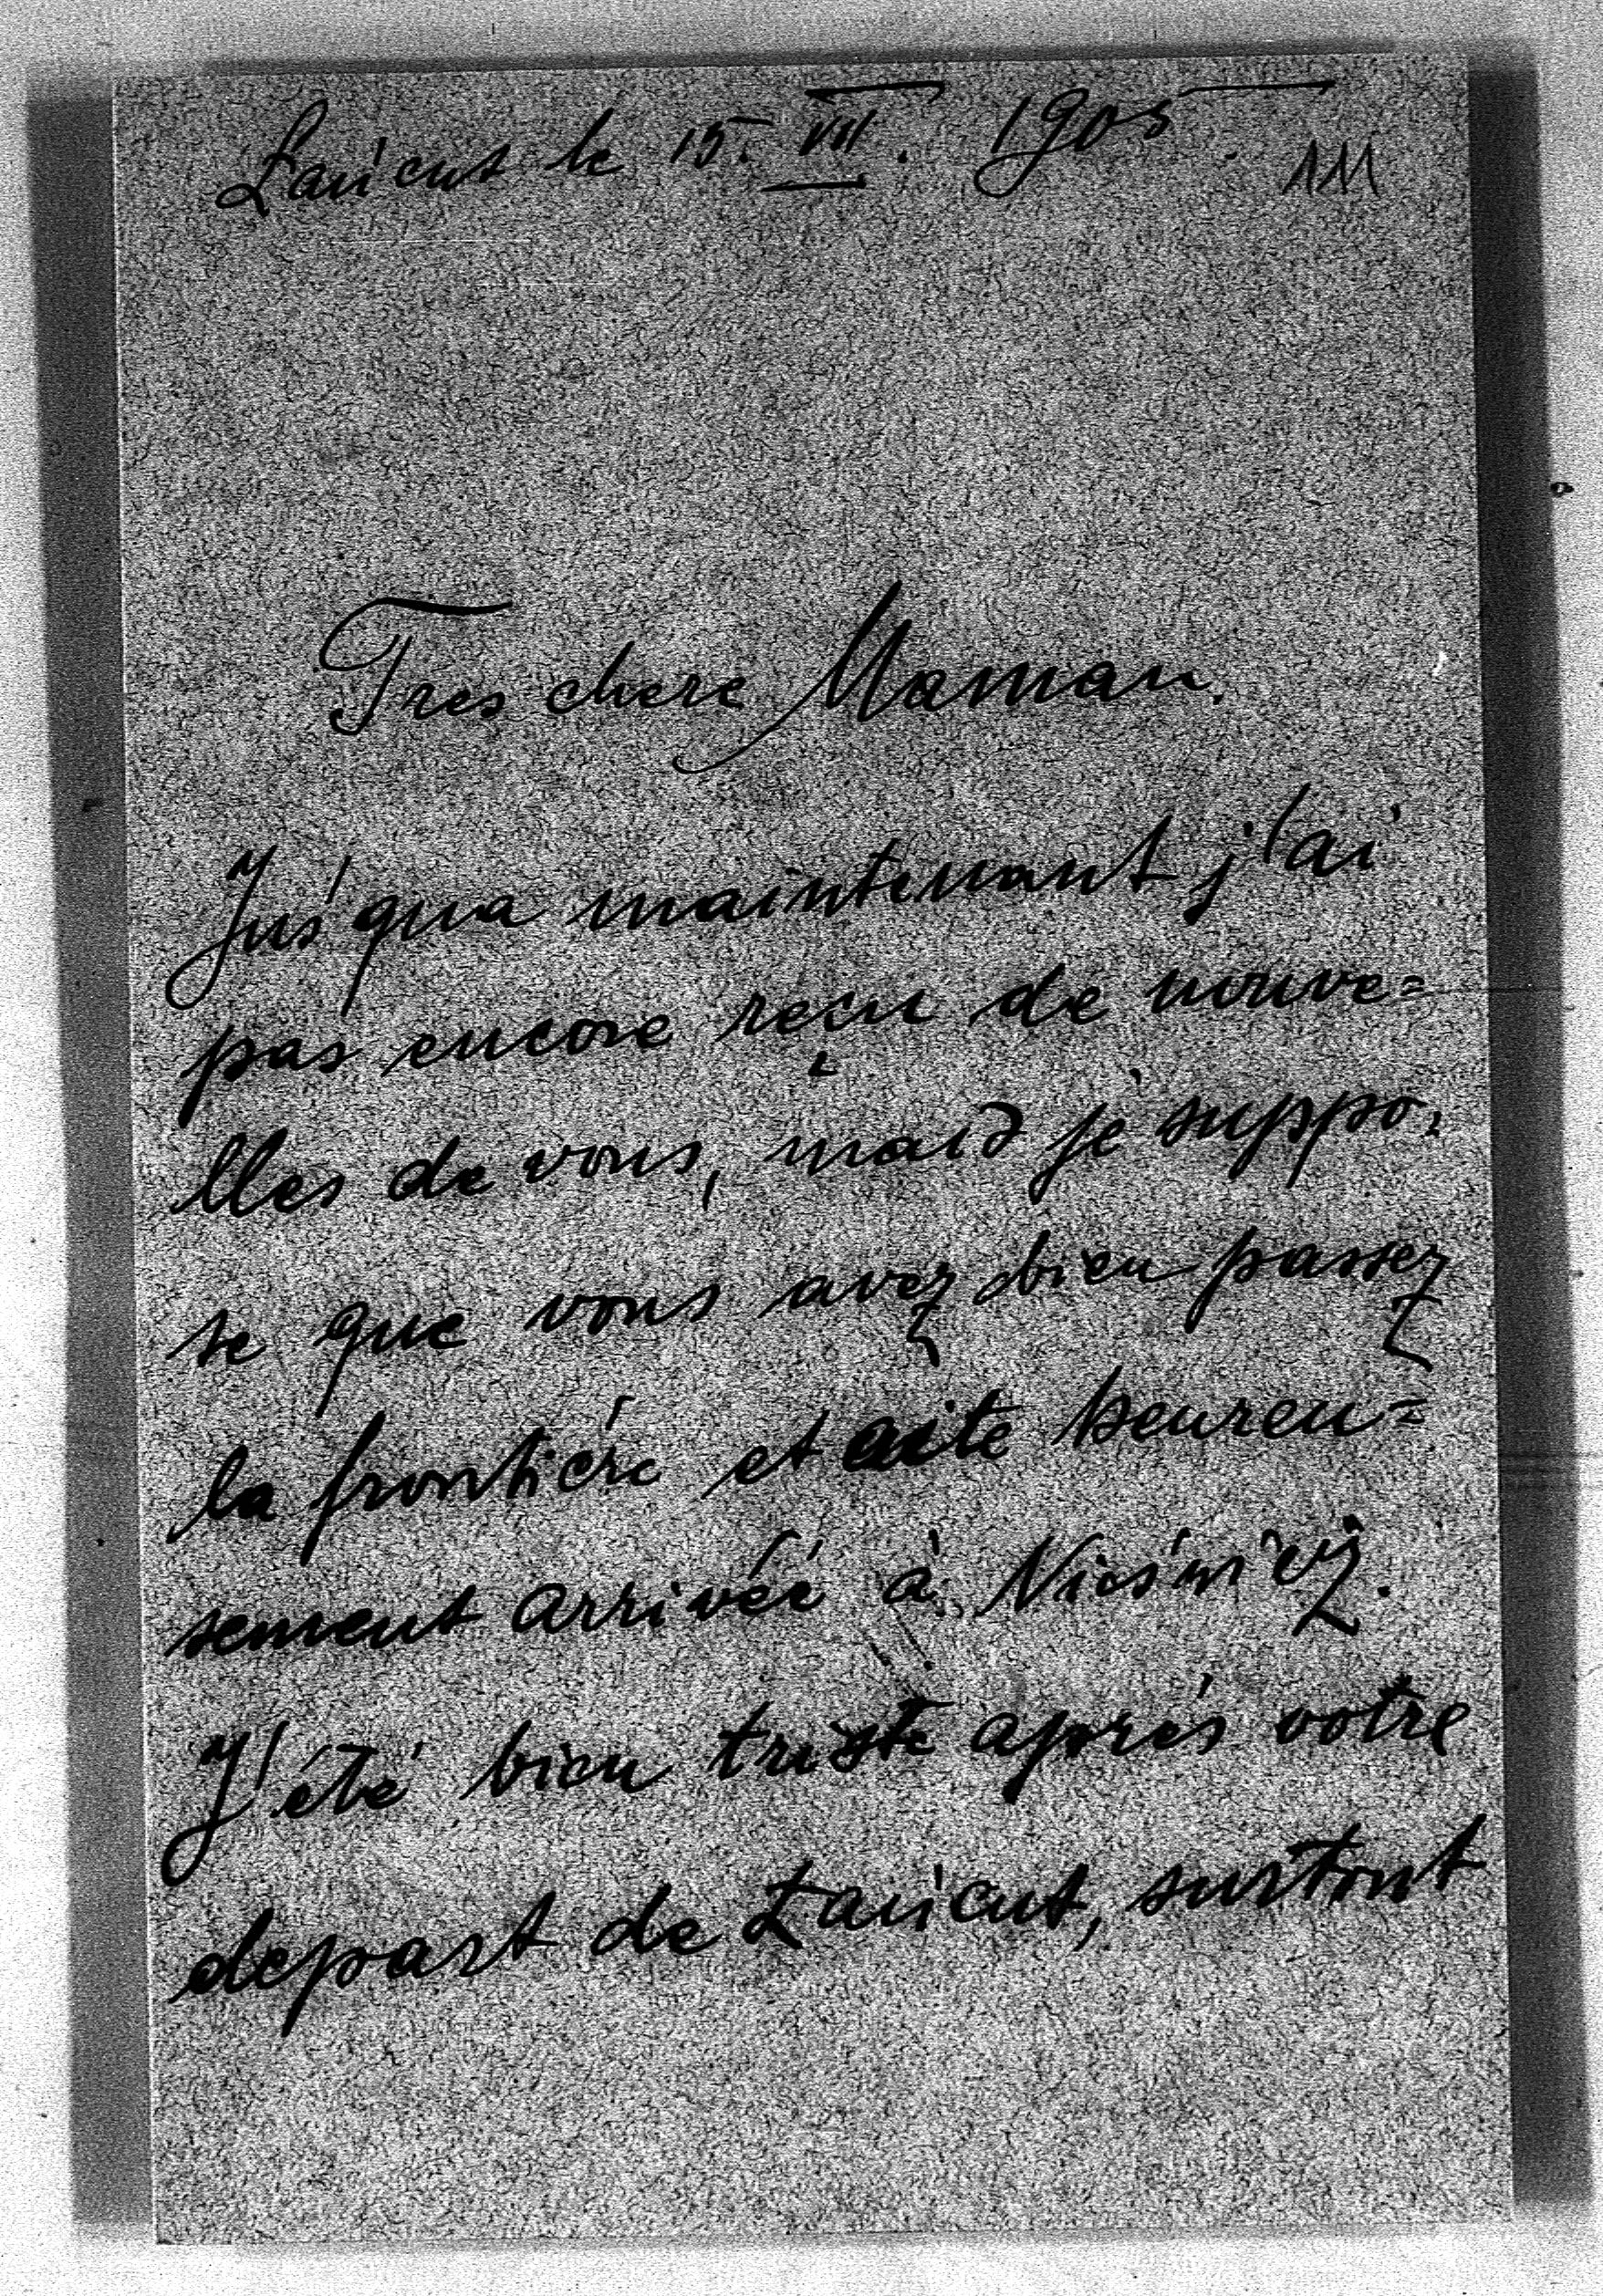 Łańcut le 15. VIII. 1905.
111
Tres chere Maman.
Jus'qua maintenant j'ai
pas encore reçu de nouve=
lles de vous, mais je suppo=
se que vous avez bien passez
la frontiére et aite heureu=
sement arrivéé à Nieśwież.
J'été bien triste aprés votre
depart de Łańcut, surtout